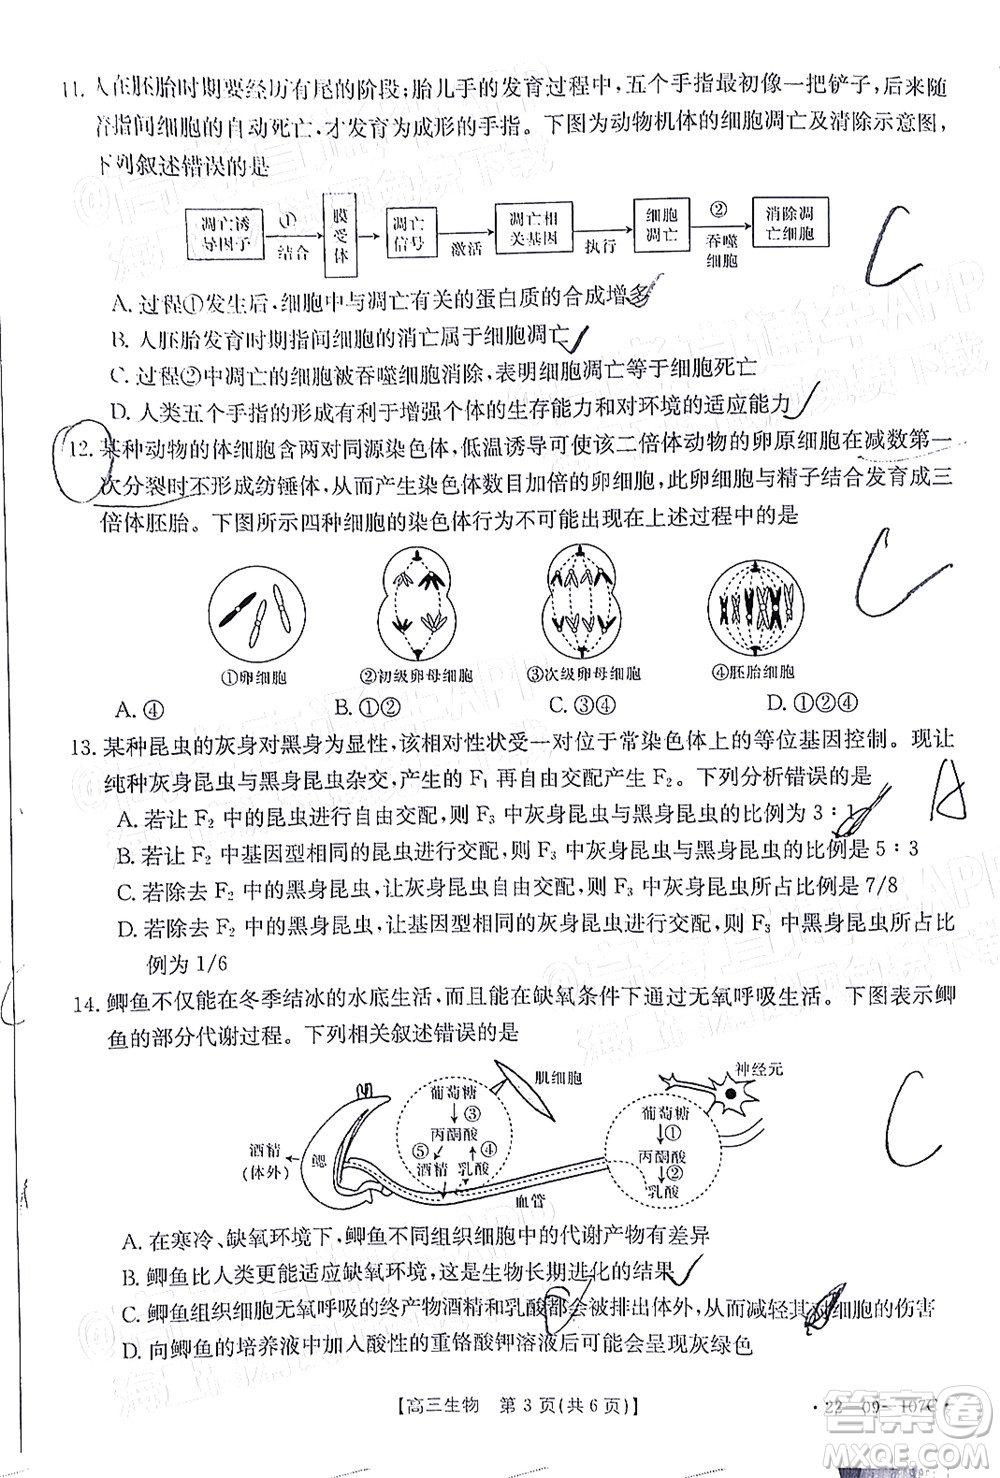 11. 人在胚胎时期要经历有尾的阶段；胎儿手的发育过程中，五个手指最初像一把铲子，后来随
着指间细胞的自动死亡，才发育为成形的手指。下图为动物机体的细胞凋亡及清除示意图，
下列叙述错误的是
凋亡诱导因子 ①结合 膜受体 凋亡信号 激活 凋亡相关基因 执行 细胞凋亡 ②吞噬细胞 消除凋亡细胞
C
A. 过程①发生后，细胞中与凋亡有关的蛋白质的合成增多
B. 人胚胎发育时期尾部细胞的消亡属于细胞凋亡
C. 过程②中凋亡的细胞被吞噬细胞消除，表明细胞凋亡等于细胞死亡
D. 人类五个手指的形成有利于增强个体的生存能力和对环境的适应能力
12. 某种动物的体细胞含两对同源染色体，低温诱导可使该二倍体动物的卵原细胞在减数第一
次分裂时不形成纺锤体，从而产生染色体数目加倍的卵细胞，此卵细胞与精子结合发育成三
倍体胚胎。下图所示四种细胞的染色体行为不可能出现在上述过程中的是
C
①卵细胞 ②初级卵母细胞 ③次级卵母细胞 ④胚胎细胞
A. ④ B. ①② C. ③④ D. ①②④
13. 某种昆虫的灰身对黑身为显性，该相对性状受一对位于常染色体上的等位基因控制。现让
纯种灰身昆虫与黑身昆虫杂交，产生的 F₁ 再自由交配产生 F₂。下列分析错误的是
A
A. 若让 F₂ 中的昆虫进行自由交配，则 F₃ 灰身昆虫与黑身昆虫的比例为 3∶1
B. 若让 F₂ 中基因型相同的昆虫进行交配，则 F₃ 灰身昆虫与黑身昆虫的比例是 5∶3
C. 若除去 F₂ 中的黑身昆虫，让灰身昆虫自由交配，则 F₃ 灰身昆虫所占比例是 7/8
D. 若除去 F₂ 中的黑身昆虫，让基因型相同的灰身昆虫交配，则 F₃ 中黑身昆虫所占比
例为 1/6
14. 鲫鱼不仅能在冬季结冰的水底生活，而且能在缺氧条件下通过无氧呼吸生活。下图表示鲫
鱼的部分代谢过程。下列相关叙述错误的是
肌细胞 神经元
葡萄糖 ③ 丙酮酸 ⑤ ④ 酒精 乳酸
葡萄糖 ① 丙酮酸 ② 乳酸
酒精(体外) 鳃 血管
C
A. 在寒冷、缺氧环境下，鲫鱼不同组织细胞中的代谢产物有差异
B. 鲫鱼比人类更能适应缺氧环境，这是生物长期进化的结果
C. 鲫鱼组织细胞无氧呼吸的终产物酒精和乳酸都会被排出体外，从而减轻其对细胞的伤害
D. 向鲫鱼的培养液中加入酸性的重铬酸钾溶液后会呈现灰绿色
【高三生物 第 3 页(共 6 页)】
·22—09—107C·
答案圈
MXQE.COM